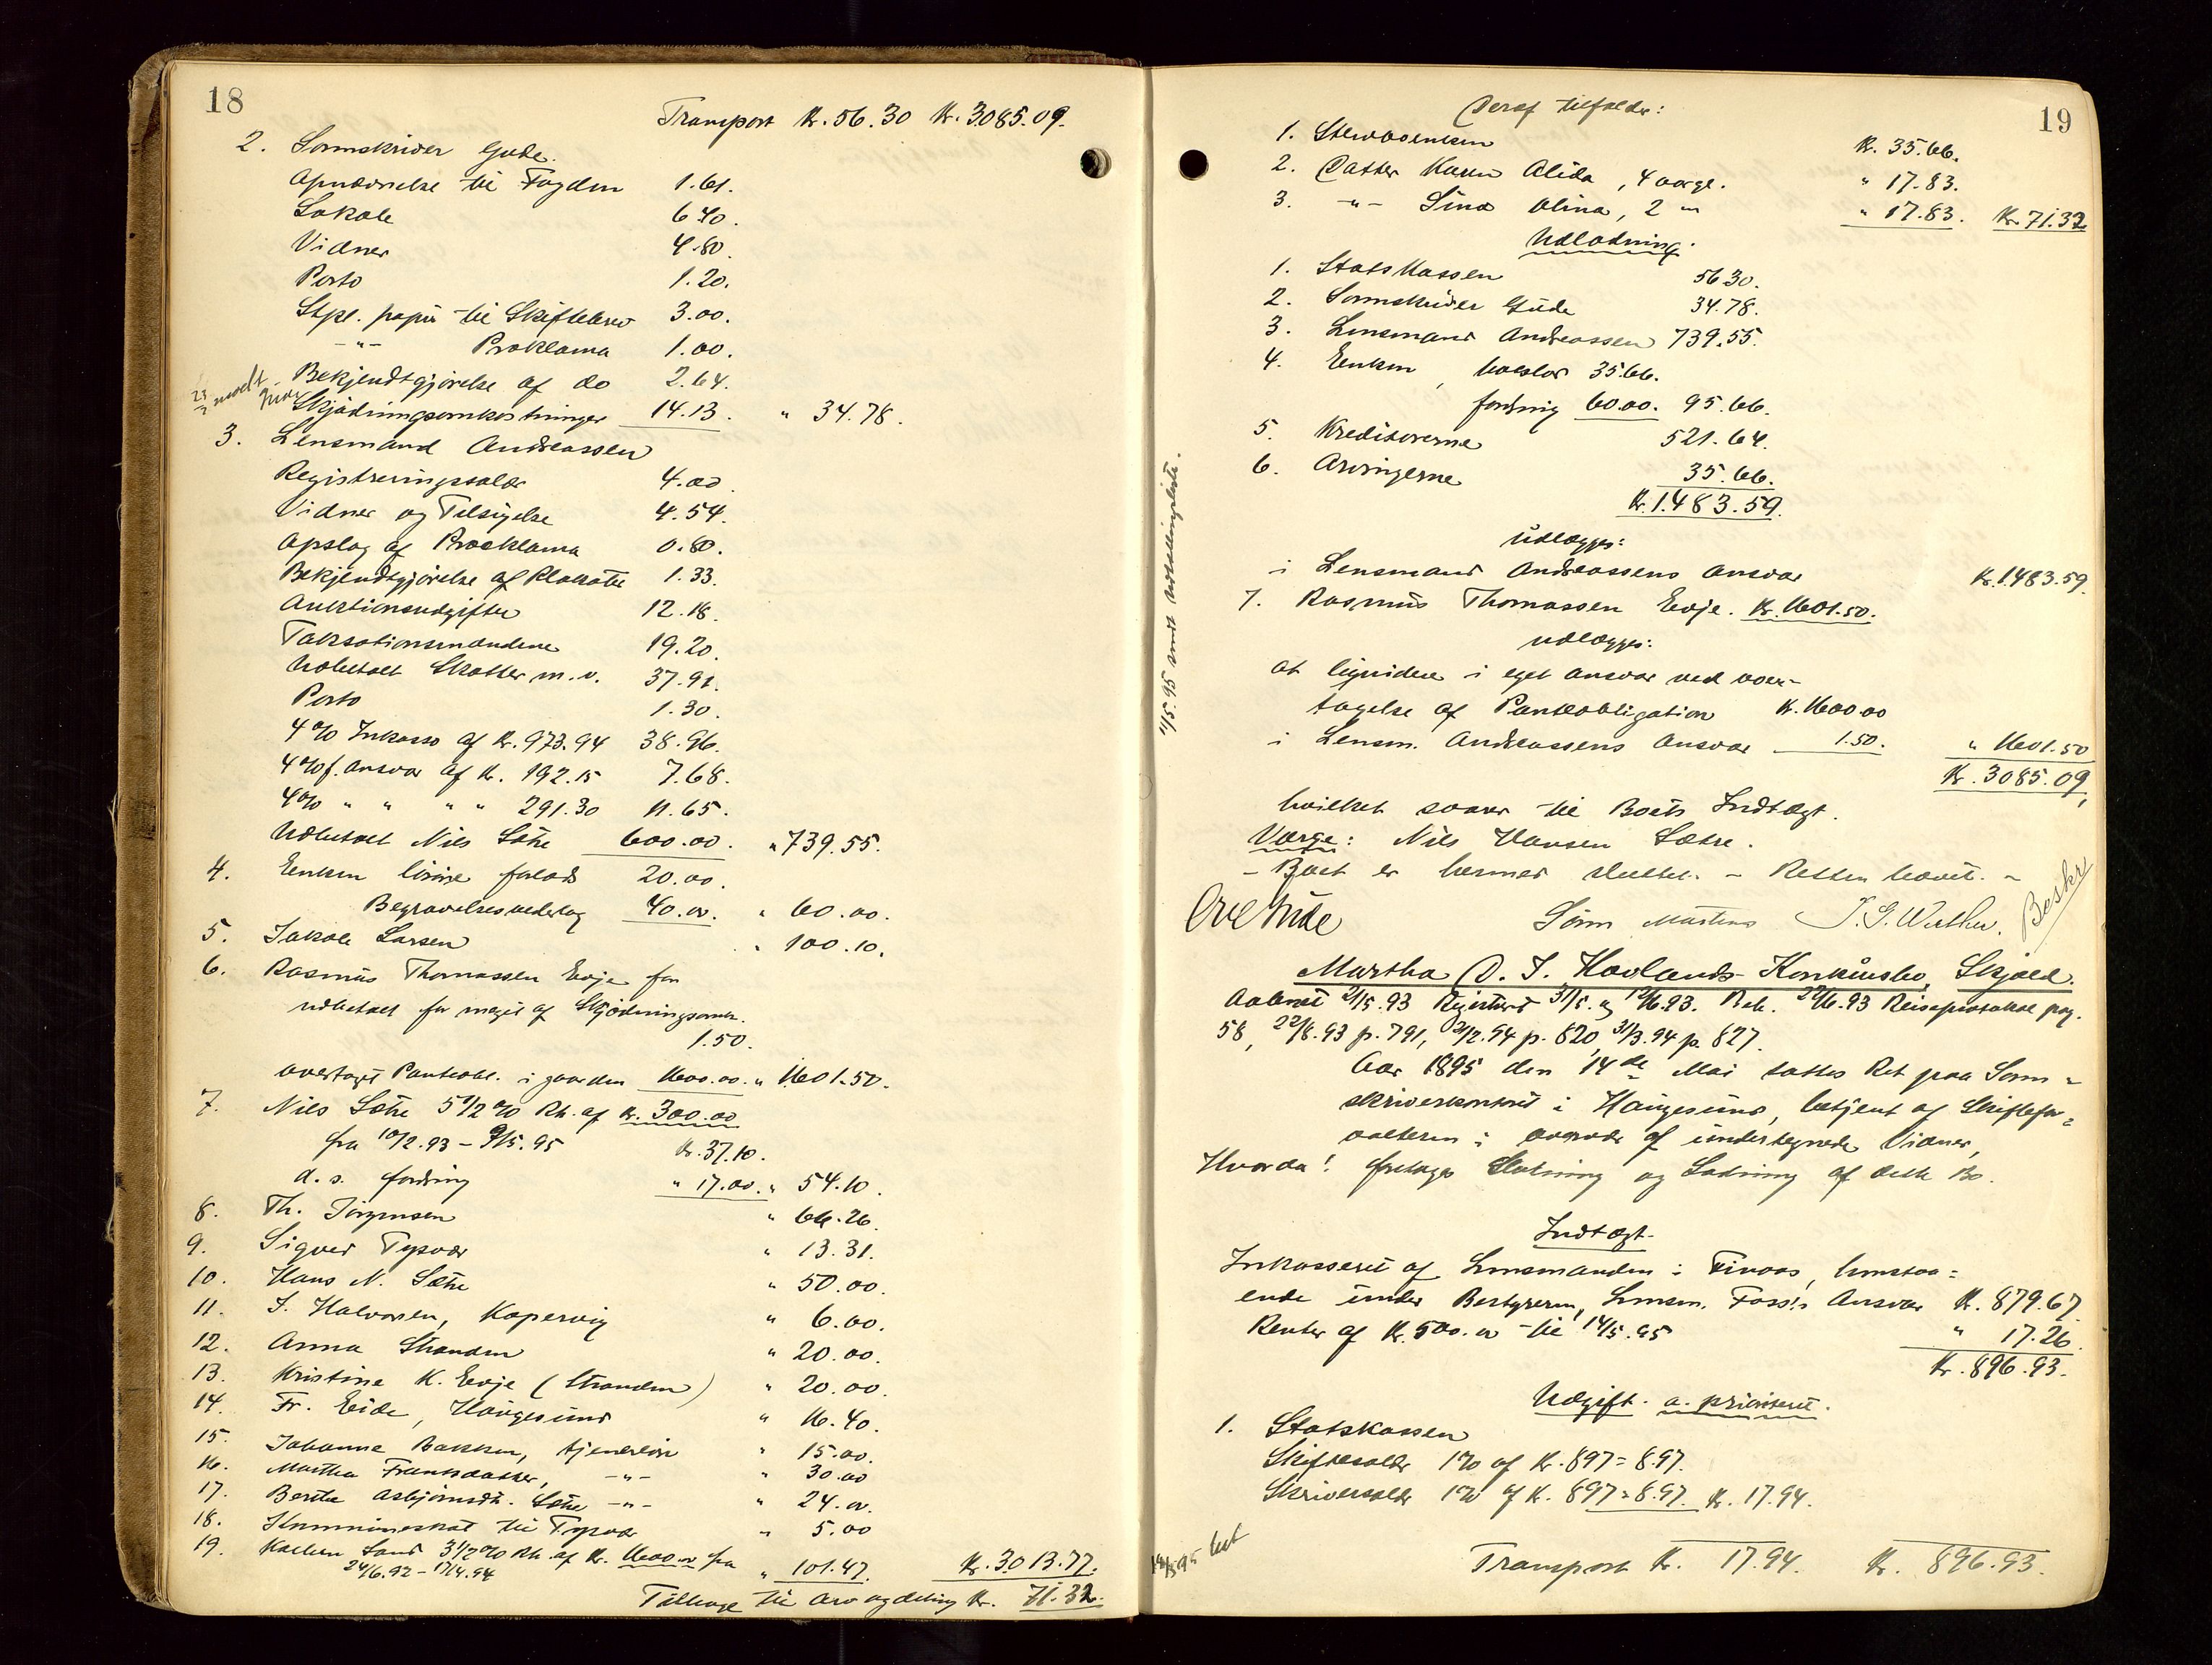 18
Transport Kr. 56.30 Kr. 3085.09.
2. Sorenskriver Gude.
Opnævnelse til Fogden 1.61.
Lokale 6 40.
Vidner 4.80.
Porto 1.20.
Stpl. papir til Skiftebrev 3.00.
-"- Proklama 1.00.
Bekjendtgjørelse af do 2.64.
Skjødningsomkostninger 14.13. " 34.78.
3. Lensmand Andreassen
Registreringssalær 4.00
Vidner og Tilsigelse 4.54.
Opslag af Proklama 0.80.
Bekjendtgjørelse af Plakater 1.33.
Auktionsudgifter 12.18.
Taksationsmændene 19.20.
Udbetalt Skatter m.v. 37.91.
Porto 1.30.
4% Inkasso af Kr. 973.94 38.96.
4% f. ansvar af Kr. 192.15 7.68.
4% " " " " 291.30 11.65.
Udbetalt Nils Sætre 600.00. " 739.55.
4. Enken livise forlods 20.00.
Begravelsesvederlag 40.00. " 60.00.
5. Jakob Larsen " 100.10.
6. Rasmus Thomassen Evje for
udbetalt for meget af Skjødningsomk.
1.50.
overtaget Panteobl. i gaarden 1600.00. " 1601.50.
7. Nils Sætre 5 1/2 % Rt. af Kr. 300.00
fra 10/2.93 - 9/5.95 Kr. 37.10.
d. s. fordring " 17.00. " 54.10.
8. Th. Jørgensen " 66.26.
9. Sigved Tysvær " 13.31.
10. Hans N. Sætre " 50.00.
11. J. Halvorsen, Kopervig " 6.00.
12. Anna Stranden " 20.00.
13. Kristine K. Evje (Stranden) " 20.00.
14. Fr. Eide, Haugesund " 16.40.
15. Johanna Bakken, tjenerløn " 15.00.
16. Martha Fransdatter, -"- " 30.00
17. Berthe Asbjørnsdt. Sætre -"- " 24.00.
18. Kommuneskat til Tysvær " 5.00
19. Sand 3 1/2 % Rt. af Kr. 1600.00 fra
24/6.92 - 17/4.94 " 101.47. Kr. 3013.77.
Tilbage til Arv og deling Kr. 71.32.
19
Deraf tilfalder:
1. Stervboenken Kr. 35.66.
2. Datter Karen Alida, 4 aargl. " 17.83.
3. -"- Sina Olina, 2 -"- " 17.83. Kr. 71.32
Udlodning.
1. Statskassen 56 30.
2. Sorenskriver Gude 34.78.
3. Lensmand Andreassen 739.55.
4. Enken, 35.66.
fordring 60.00. 95.66.
5. Kreditorerne 521.64.
6. Arvingerne 35.66.
Kr. 1483.59.
udlægges:
i Lensmand Andreassens ansvar Kr. 1483.59.
7. Rasmus Thomassen Evje. Kr. 1601.50.
udlægges:
at liqvidere i eget ansvar ved over-
tagelse af Panteobligation Kr. 1600.00
i Lensm. Andreassens ansvar 1.50. " 1601.50
Kr. 3085.09,
hvilket svarer til Boets Indtægt.
Værge: Nils Hansen Sætre.
- Boet er hermed sluttet. - Retten hævet. -
Ove Gude Beskr
11/5.95 sendt
Martha O. J. Hovlands Konkursbo, Skjold.
Aabnet 2/5.93 Registrert 31/5. og 12/6.93. Beh. 22/6.93 Reiseprotokol pag.
58, 22/8.93 p. 791, 21/2.94 p. 820, 31/3.94 p. 827.
Aar 1895 den 14de Mai sattes Ret paa Soren-
skriverkontoret i Haugesund, betjent af Skiftefor-
valteren i overvær af undertegnede Vidner,
Hvorda! foretoges Slutning og Lodning af dette Bo.
Indtægt.
Inkasseret af Lensmanden i Tinvaas, henstaa-
ende under Bestyreren, Lensm. Foss's Ansvar Kr. 879.67
Renter af Kr. 500.00 til 14/5.95 " 17.26.
Kr. 896.93.
Udgift. a. prioriteret.
1. Statskassen
Skiftesalær 1% af Kr. 897 = 8.97.
Skriversalær 1% af Kr. 897 = 8.97. Kr. 17.94.
Transport Kr. 17.94. Kr. 896.93.